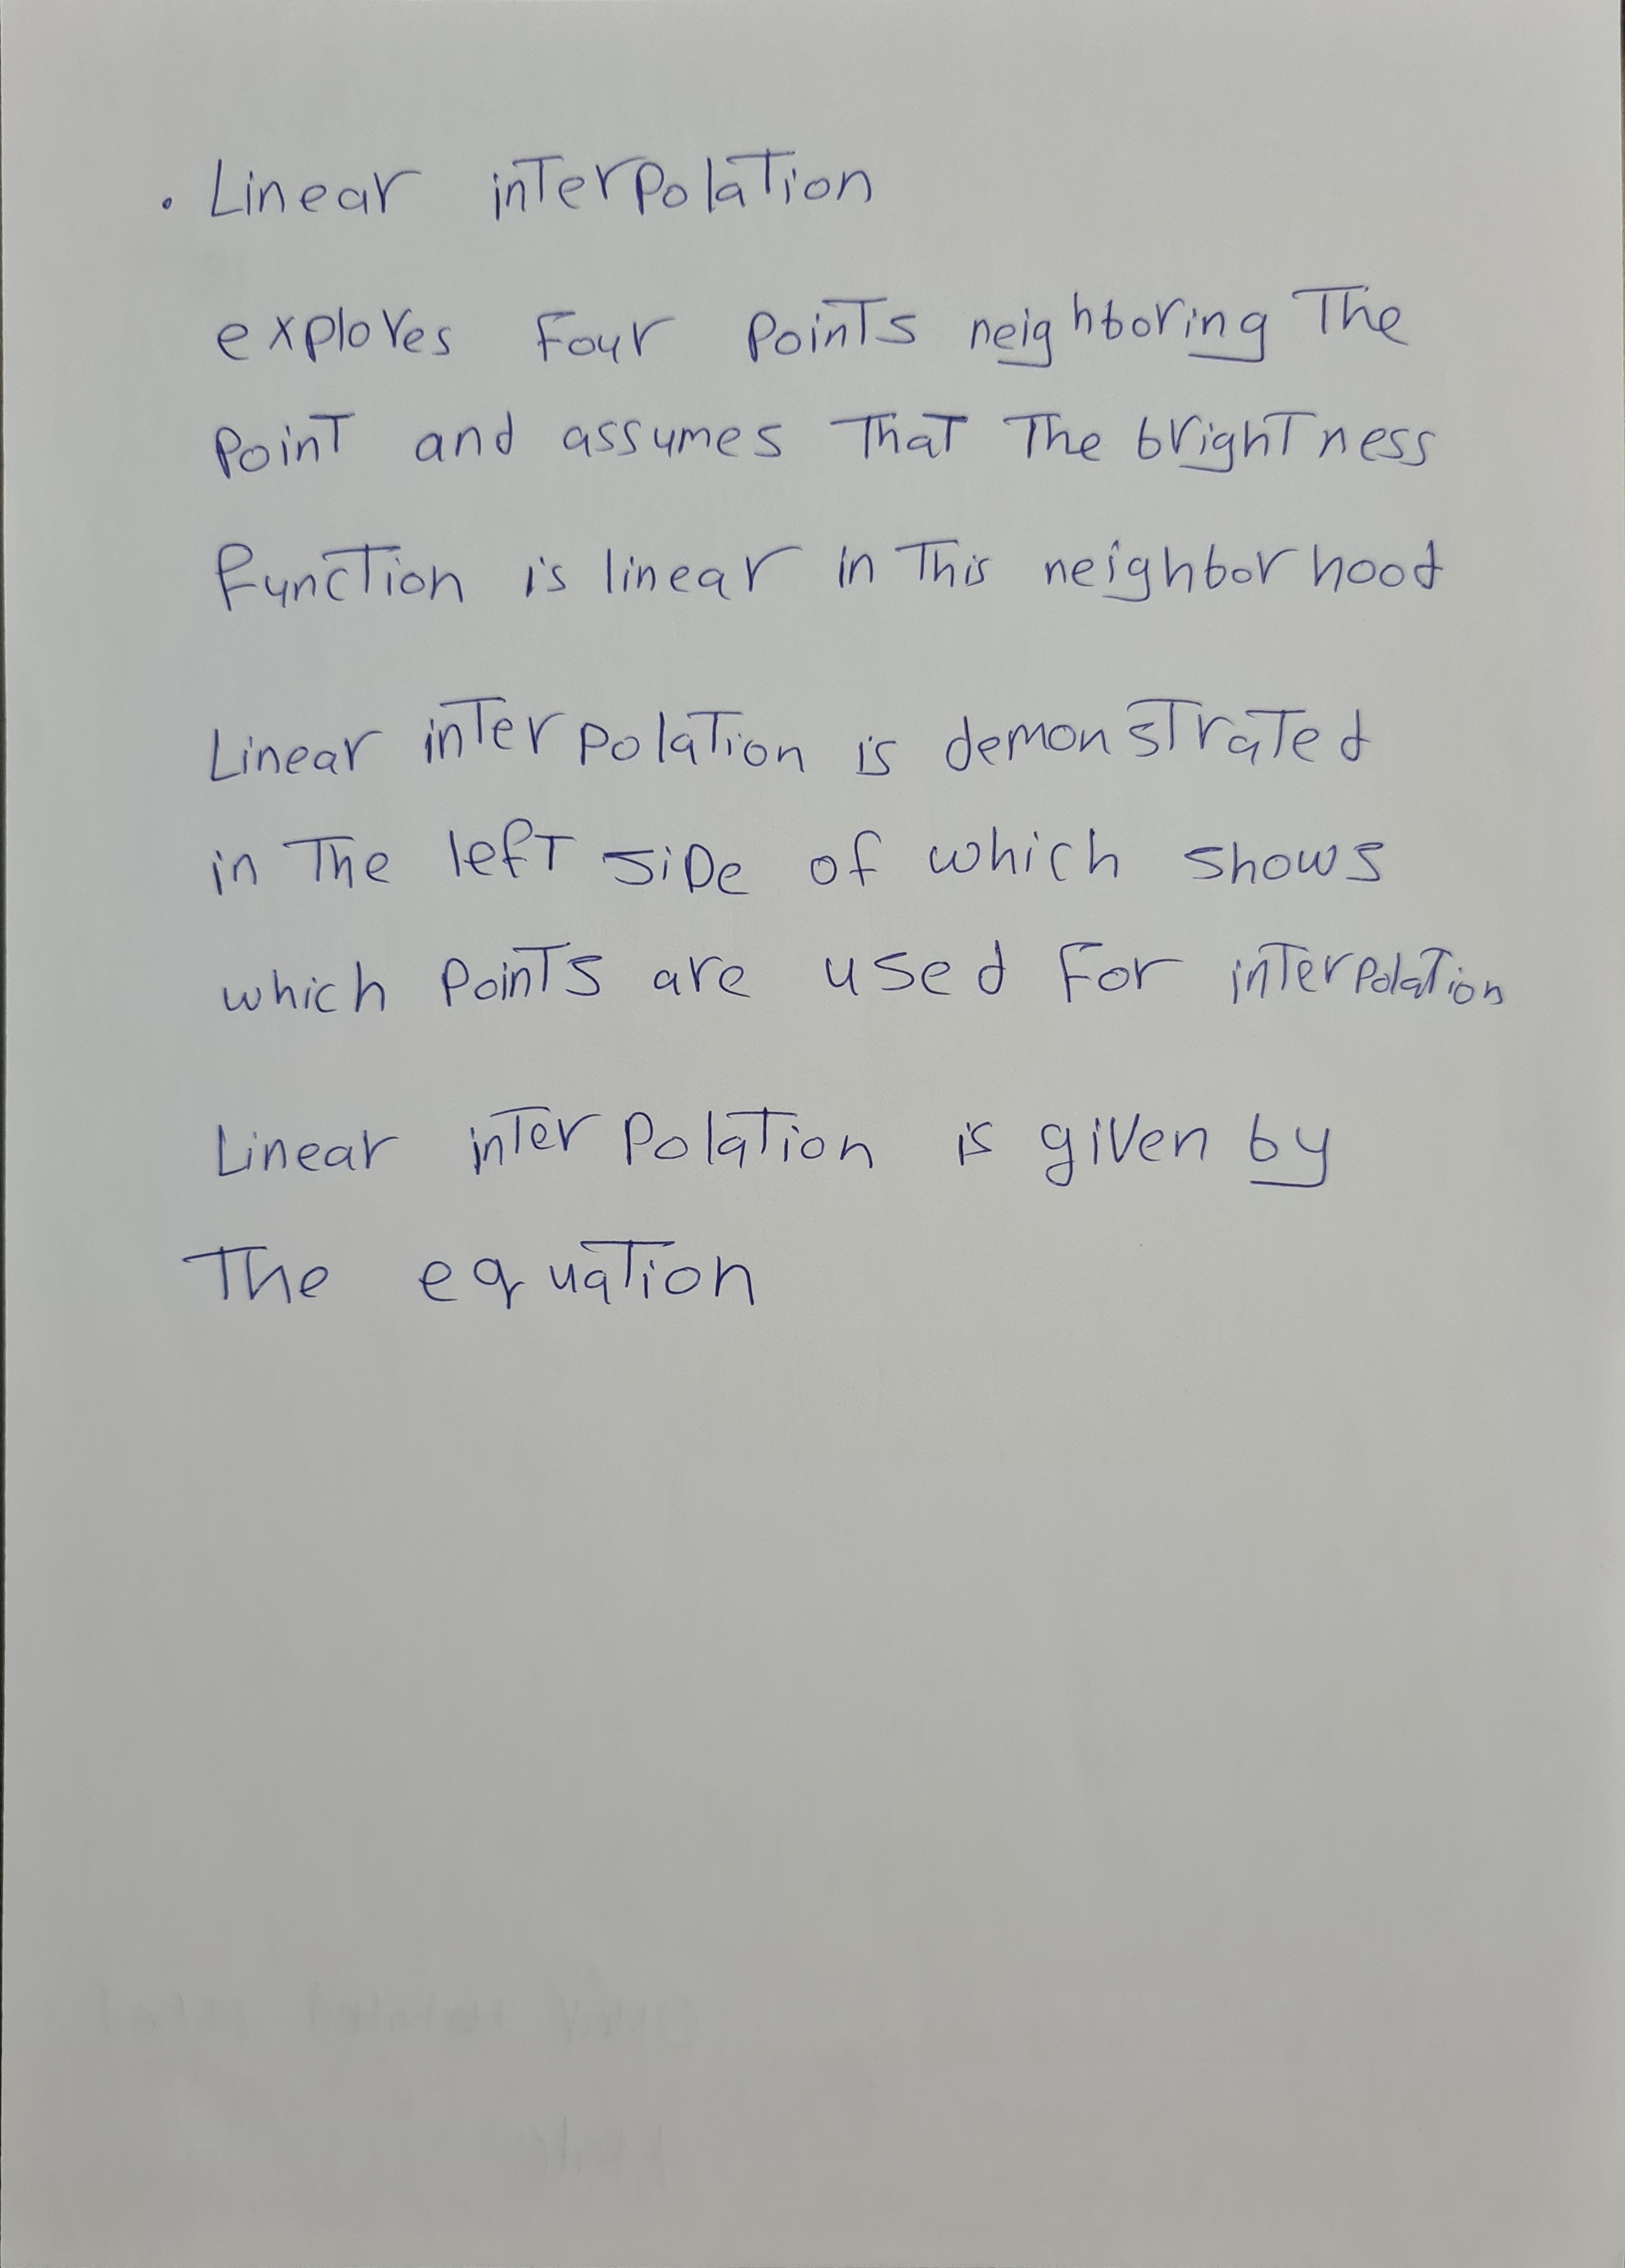 . Linear interpolation
explores four points neighboring The
point and assumes That The brightness
function is linear in This neighborhood
Linear interpolation is demonstrated
in The left siDe of which shows
which points are used for interpolation
Linear interpolation is given by
The equation